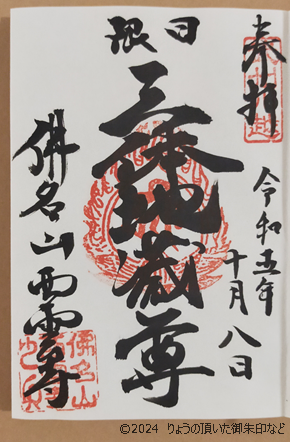 奉拝
令和五年
十月八日
日限
三体地蔵尊
佛名山西雲寺
佛名山
©2024 りょうの頂いた御朱印など